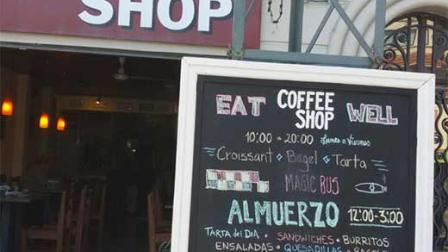 SHOP
EAT COFFEE SHOP WELL
10:00 - 20:00 Lunes a Viernes
Croissant • Bagel • Tarta
MAGIC BUS
ALMUERZO 12:00-3:00
TARTA DEL DIA • SANDWICHES • BURRITOS
ENSALADAS • QUESADILLAS